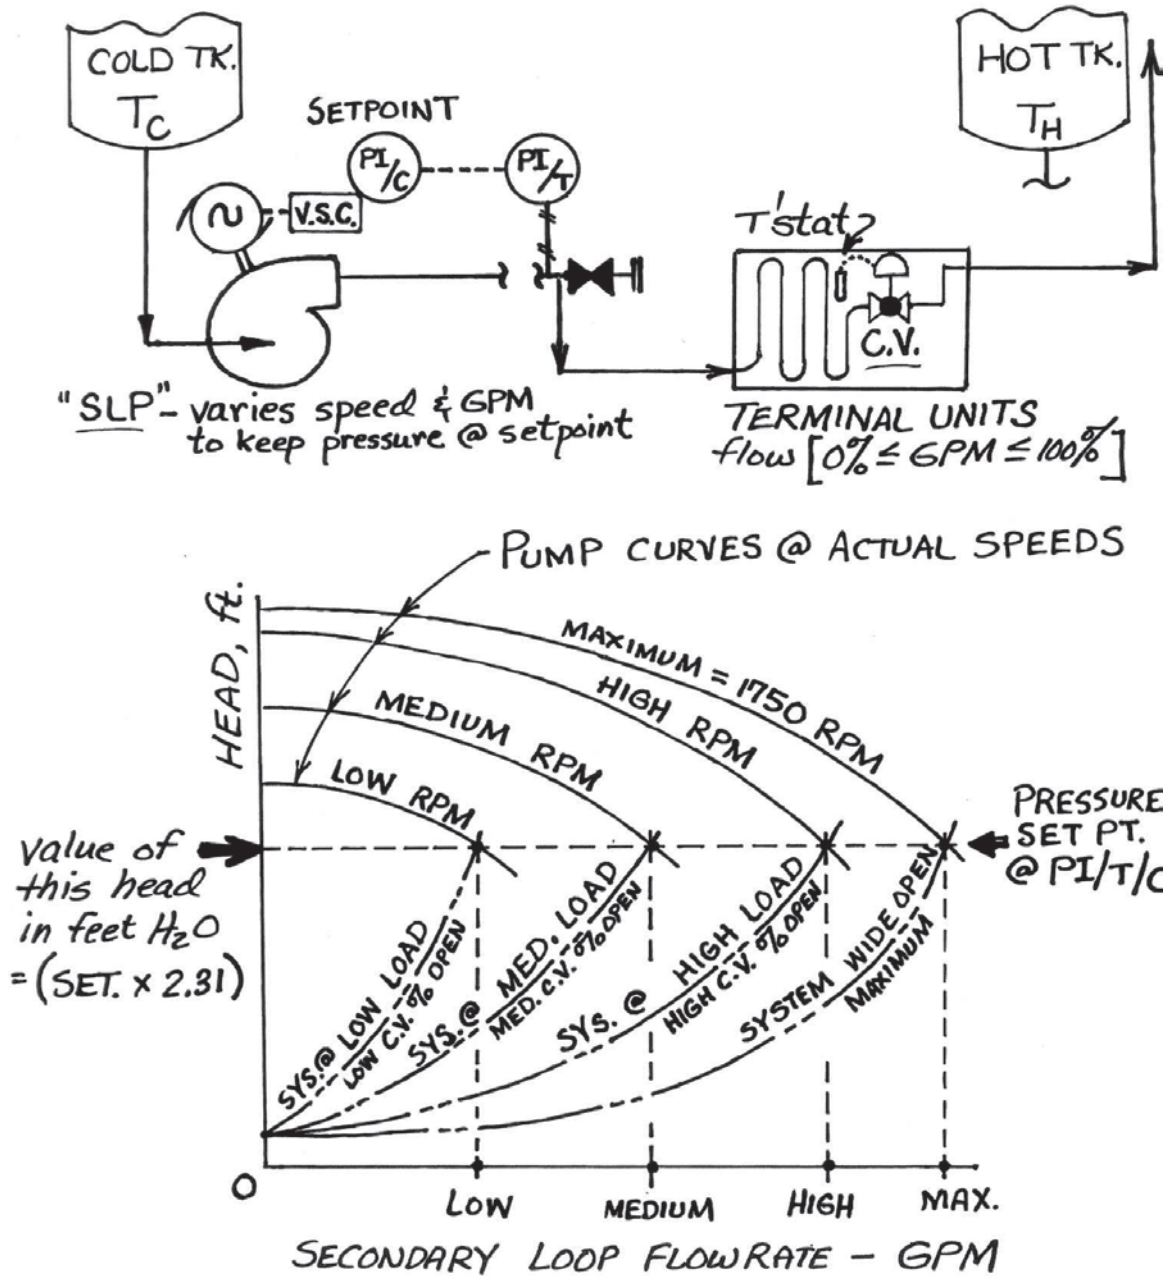 COLD TK.
TC
SETPOINT
PI/C
PI/T
V.S.C.
HOT TK.
TH
T'stat
C.V.
"SLP" - varies speed & GPM
to keep pressure @ setpoint
TERMINAL UNITS
flow [0% ≤ GPM ≤ 100%]
PUMP CURVES @ ACTUAL SPEEDS
HEAD, ft.
MAXIMUM = 1750 RPM
HIGH RPM
MEDIUM RPM
LOW RPM
value of
this head
in feet H2O
= (SET. x 2.31)
PRESSURE
SET PT.
@ PI/T/C
SYS.@ LOW LOAD
LOW C.V. % OPEN
SYS.@ MED. LOAD
MED. C.V. % OPEN
SYS. @ HIGH LOAD
HIGH C.V. % OPEN
SYSTEM WIDE OPEN
MAXIMUM
0
LOW
MEDIUM
HIGH
MAX.
SECONDARY LOOP FLOWRATE - GPM